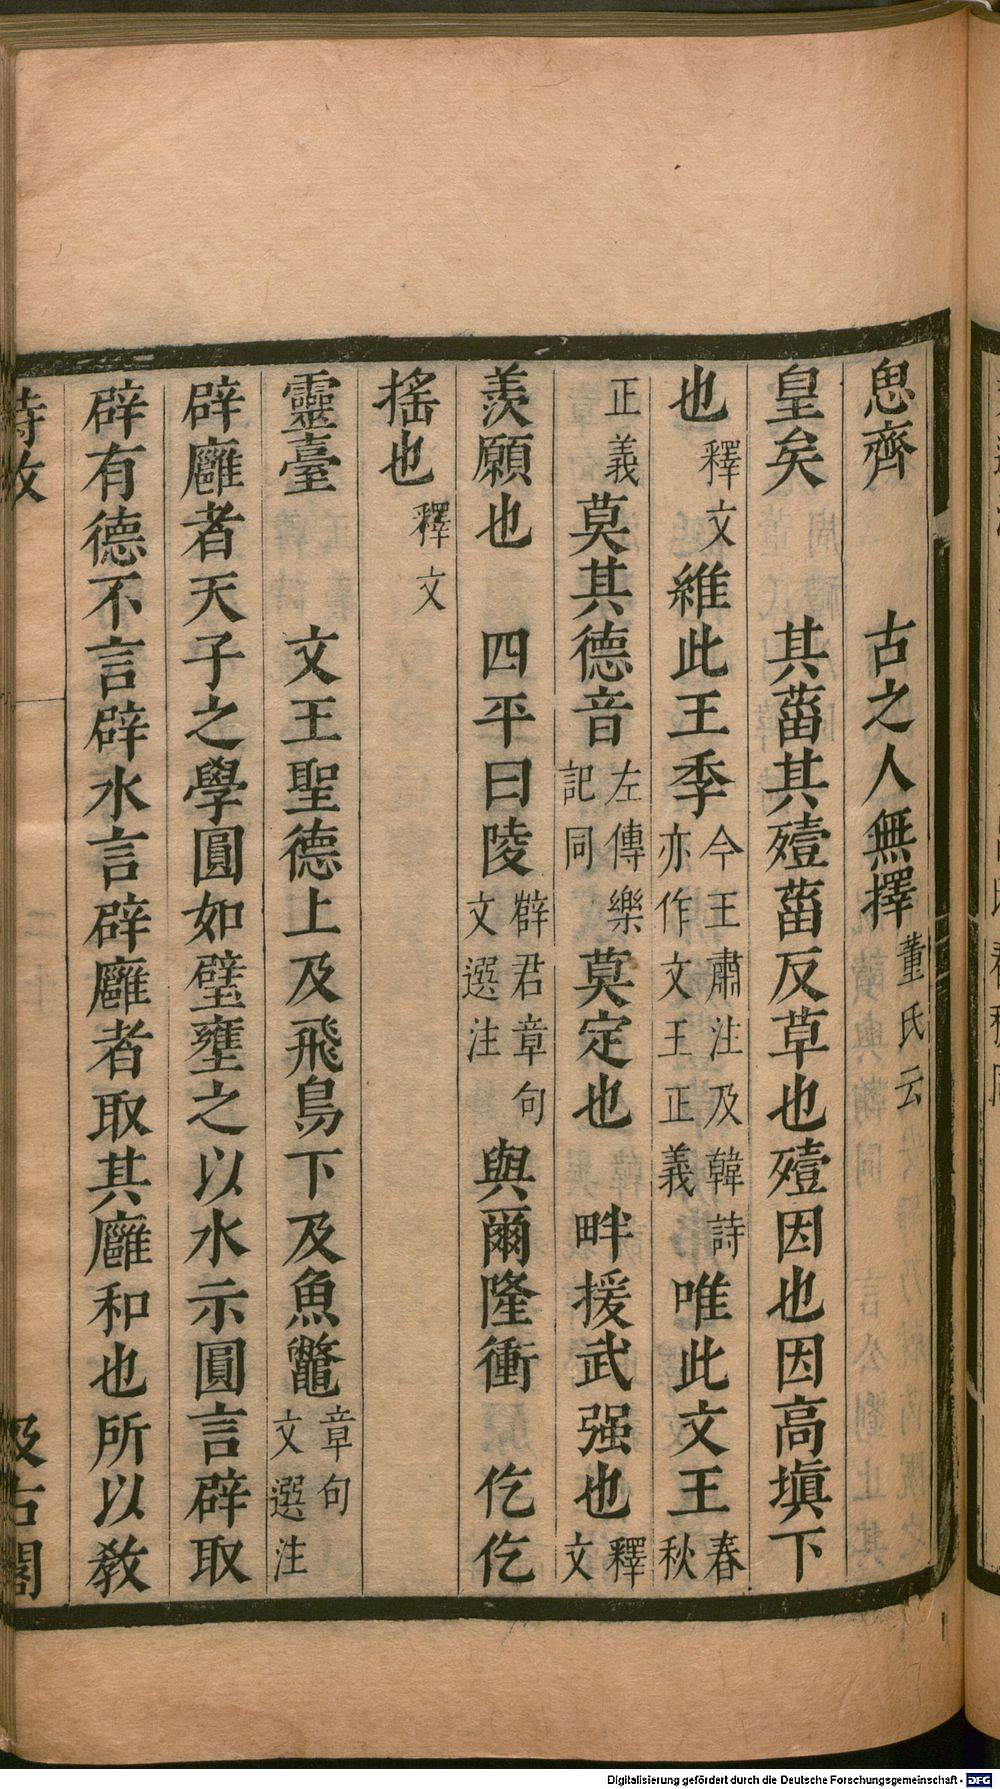 思齊　古之人無擇董氏云
皇矣　其菑其殪菑反草也殪因也因高塡下
也釋文維此王季今王肅注及韓詩亦作文王正義唯此文王春秋
正義莫其德音左傳樂記同莫定也　畔援武强也釋文
羨願也　四平曰陵薛君章句文選注　與爾隆衝　仡仡
搖也釋文
靈臺　文王聖德上及飛鳥下及魚鼈章句文選注
辟廱者天子之學圓如璧壅之以水示圓言辟取
辟有德不言辟水言辟廱者取其廱和也所以敎
詩攷　汲古閣
Digitalisierung gefördert durch die Deutsche Forschungsgemeinschaft - DFG